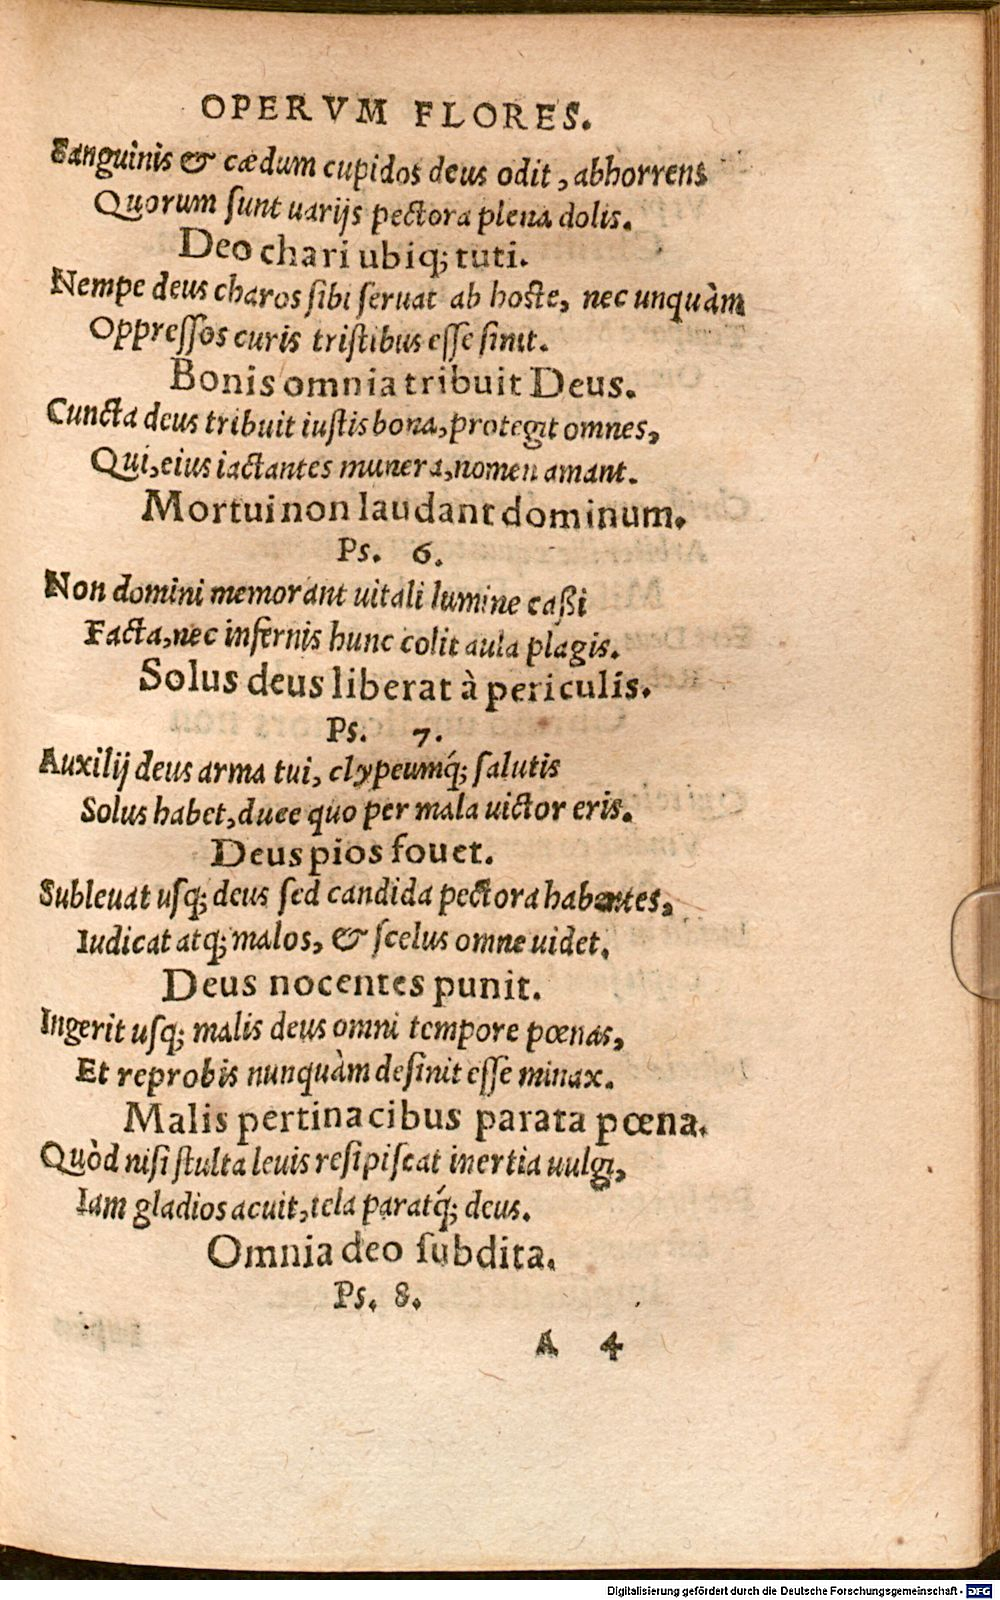 OPERVM FLORES.
Sanguinis & cædum cupidos deus odit, abhorrens
Quorum ſunt uarijs pectora plena dolis.
Deo chari ubiq; tuti.
Nempe deus charos ſibi ſeruat ab hoſte, nec unquàm
Oppreſſos curis triſtibus eſſe ſinit.
Bonis omnia tribuit Deus.
Cuncta deus tribuit iuſtis bona, protegit omnes,
Qui, eius iactantes munera, nomen amant.
Mortui non laudant dominum.
Ps. 6.
Non domini memorant uitali lumine caßi
Facta, nec infernis hunc colit aula plagis.
Solus deus liberat à periculis.
Ps. 7.
Auxilij deus arma tui, clypeumq́; ſalutis
Solus habet, duce quo per mala uictor eris.
Deus pios fouet.
Subleuat uſq; deus ſed candida pectora habentes,
Iudicat atq; malos, & ſcelus omne uidet.
Deus nocentes punit.
Ingerit uſq; malis deus omni tempore pœnas,
Et reprobis nunquàm deſinit eſſe minax.
Malis pertinacibus parata pœna.
Quòd niſi ſtulta leuis reſipiſcat inertia uulgi,
Iam gladios acuit, tela paratq́; deus.
Omnia deo ſubdita.
Ps. 8.
A 4
Digitalisierung gefördert durch die Deutsche Forschungsgemeinschaft - DFG